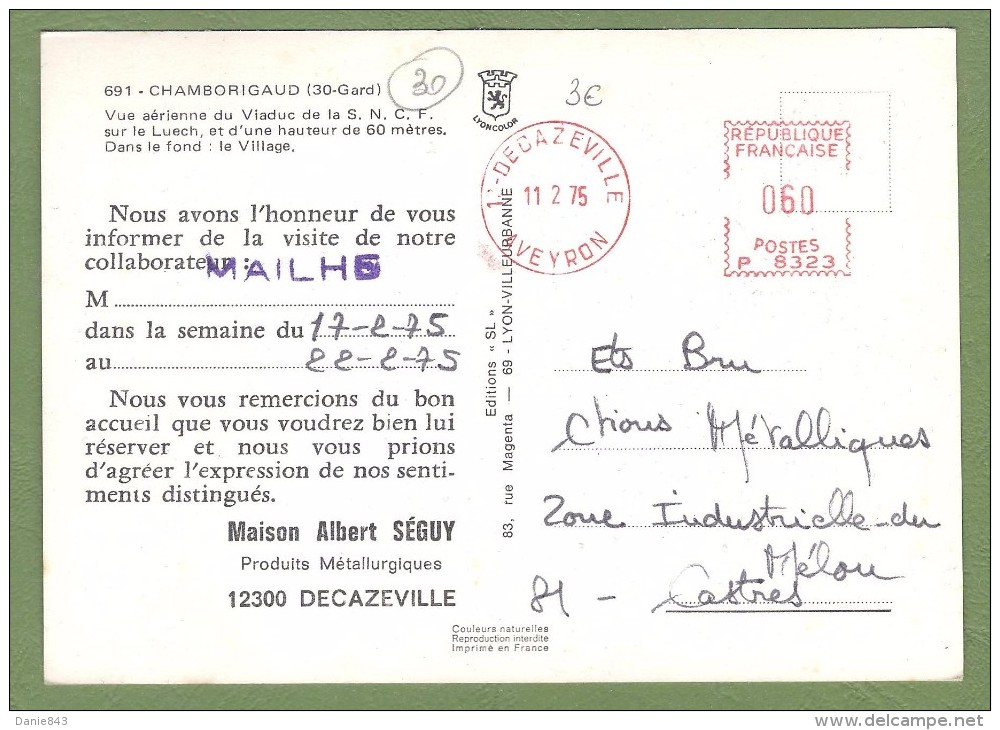 691 - CHAMBORIGAUD (30-Gard)
30
Vue aérienne du Viaduc de la S. N. C. F.
sur le Luech, et d'une hauteur de 60 mètres.
Dans le fond : le Village.
LYONCOLOR
3€
DECAZEVILLE
11 2 75
AVEYRON
RÉPUBLIQUE
FRANÇAISE
060
POSTES
P 8323
Nous avons l'honneur de vous
informer de la visite de notre
collaborateur :
MAILHE
M
dans la semaine du 17-2-75
au 22-2-75
Nous vous remercions du bon
accueil que vous voudrez bien lui
réserver et nous vous prions
d'agréer l'expression de nos senti-
ments distingués.
Maison Albert SÉGUY
Produits Métallurgiques
12300 DECAZEVILLE
Editions « SL »
83, rue Magenta — 69 - LYON-VILLEURBANNE
Couleurs naturelles
Reproduction interdite
Imprimé en France
Ets Bru
Ctions Métalliques
Zone Industrielle du
Mélou
81 - Castres
Danie843
www.delcampe.net